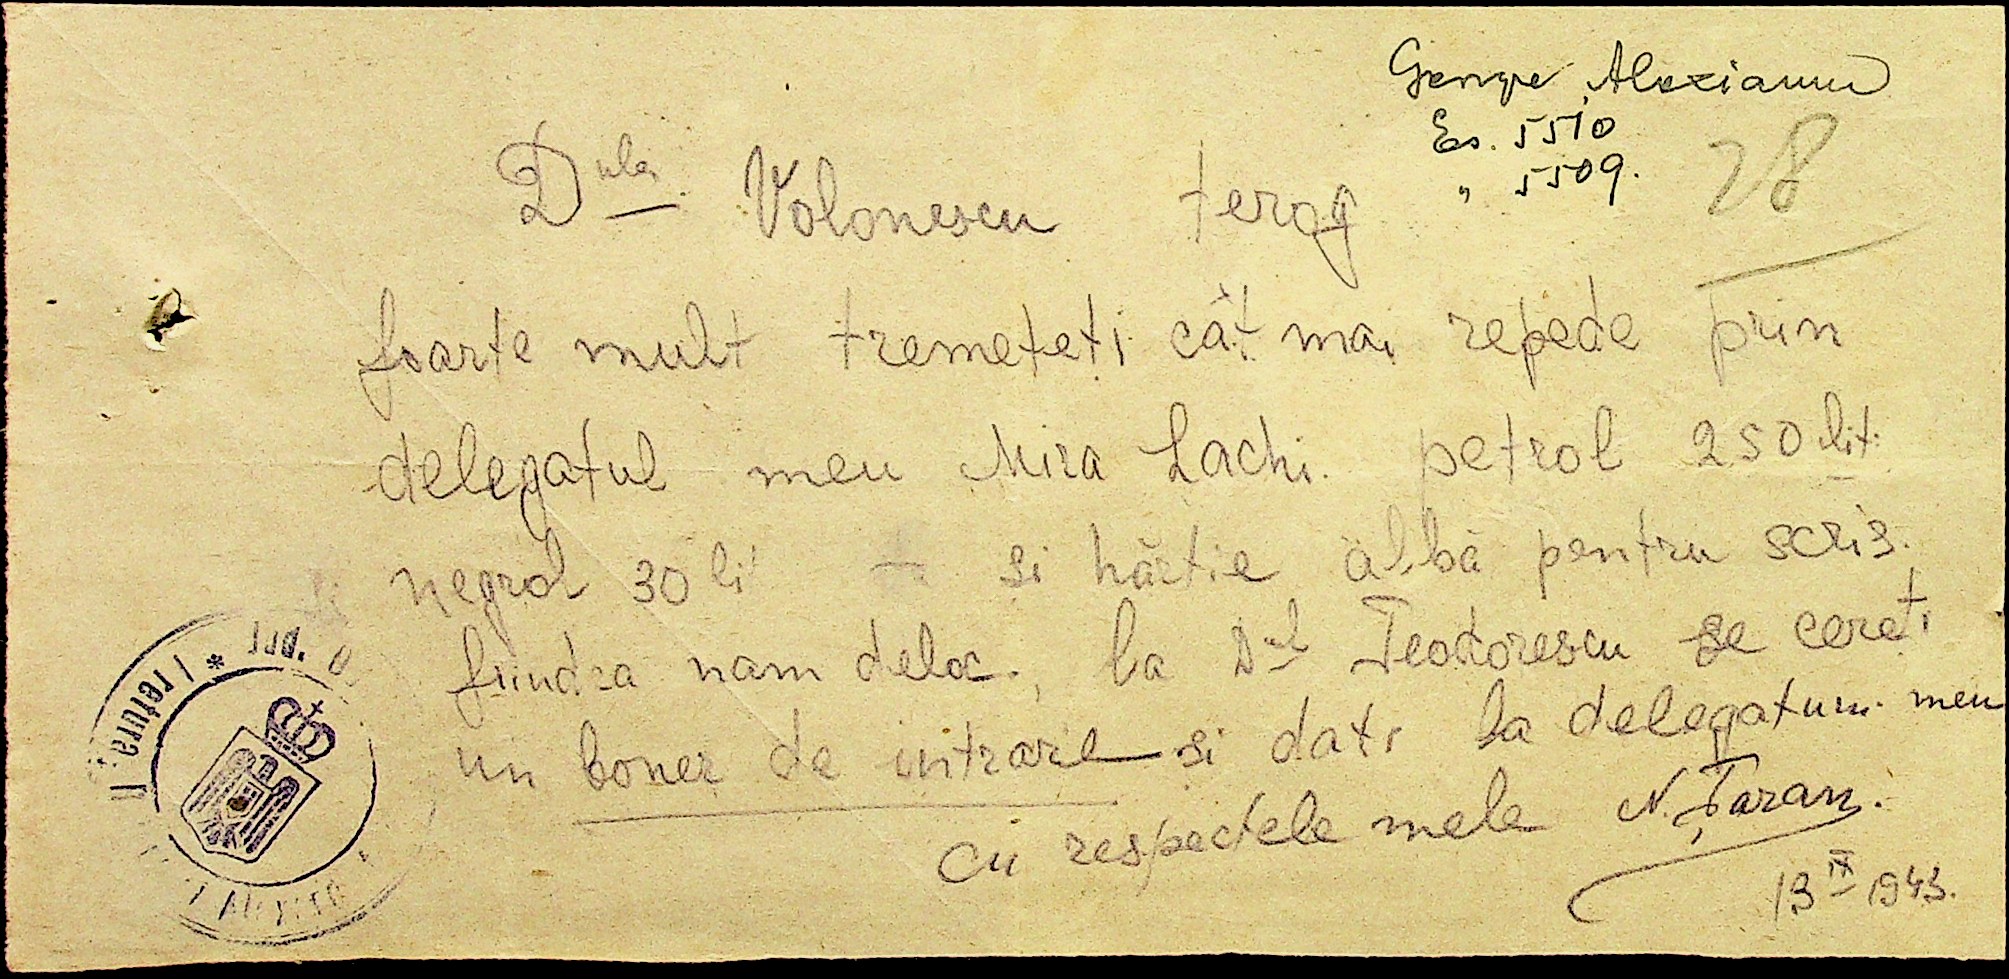 George Alexianu
Es. 5510
" 5509.
28
Dnule Volonescu te rog
foarte mult tremeteți cât mai repede prin
delegatul meu Mira Lachi. petrol 250 lit.
negrol 30 li și hârtie albă pentru scris.
fiindca nam deloc, la Dnul Teodorescu se cereți
un boner de intrare și dați la delegatum meu
cu respectele mele N. Țaran.
13 IX 1943.
Jud. O